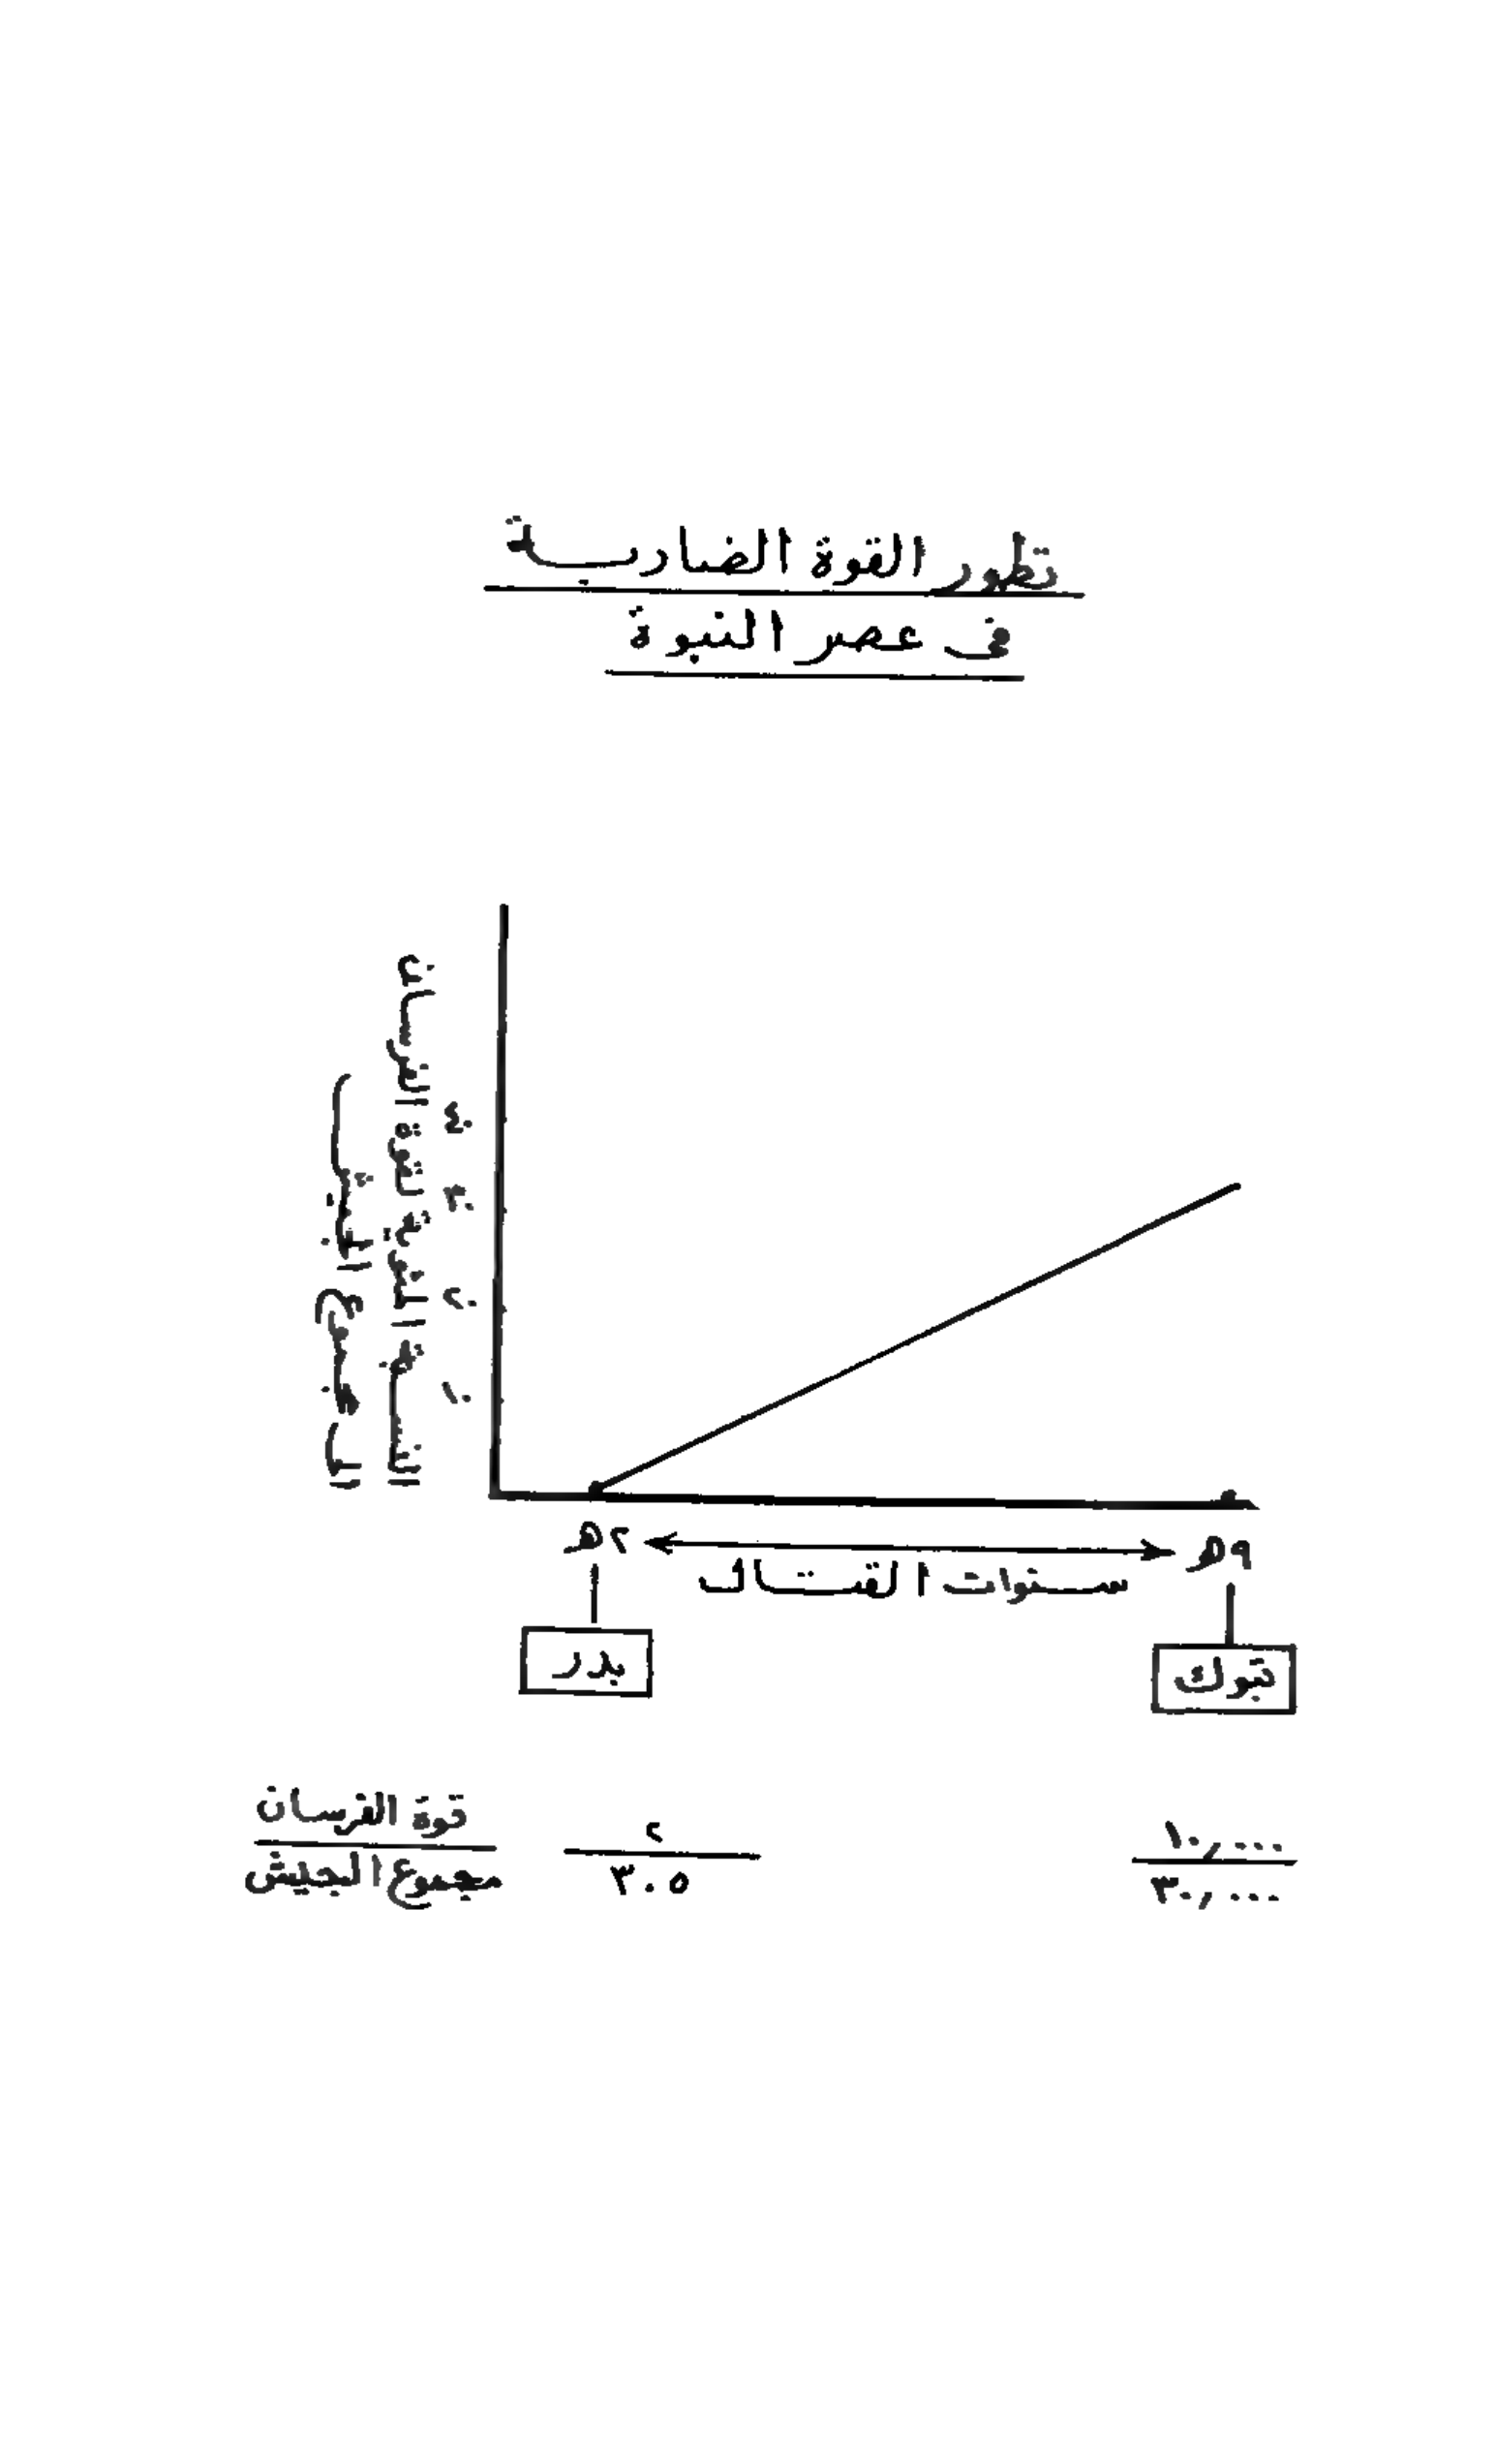 تطور القوة الضاربة
فى عصر النبوة
النسبة المئوية لقوة الفرسان
الى مجموع الجيش
٤٠
٣٠
٢٠
١٠
٢هـ
٩هـ
سنوات القتال
بدر
تبوك
قوة الفرسان
مجموع الجيش
٢
٣٠٥
١٠,٠٠٠
٣٠,٠٠٠